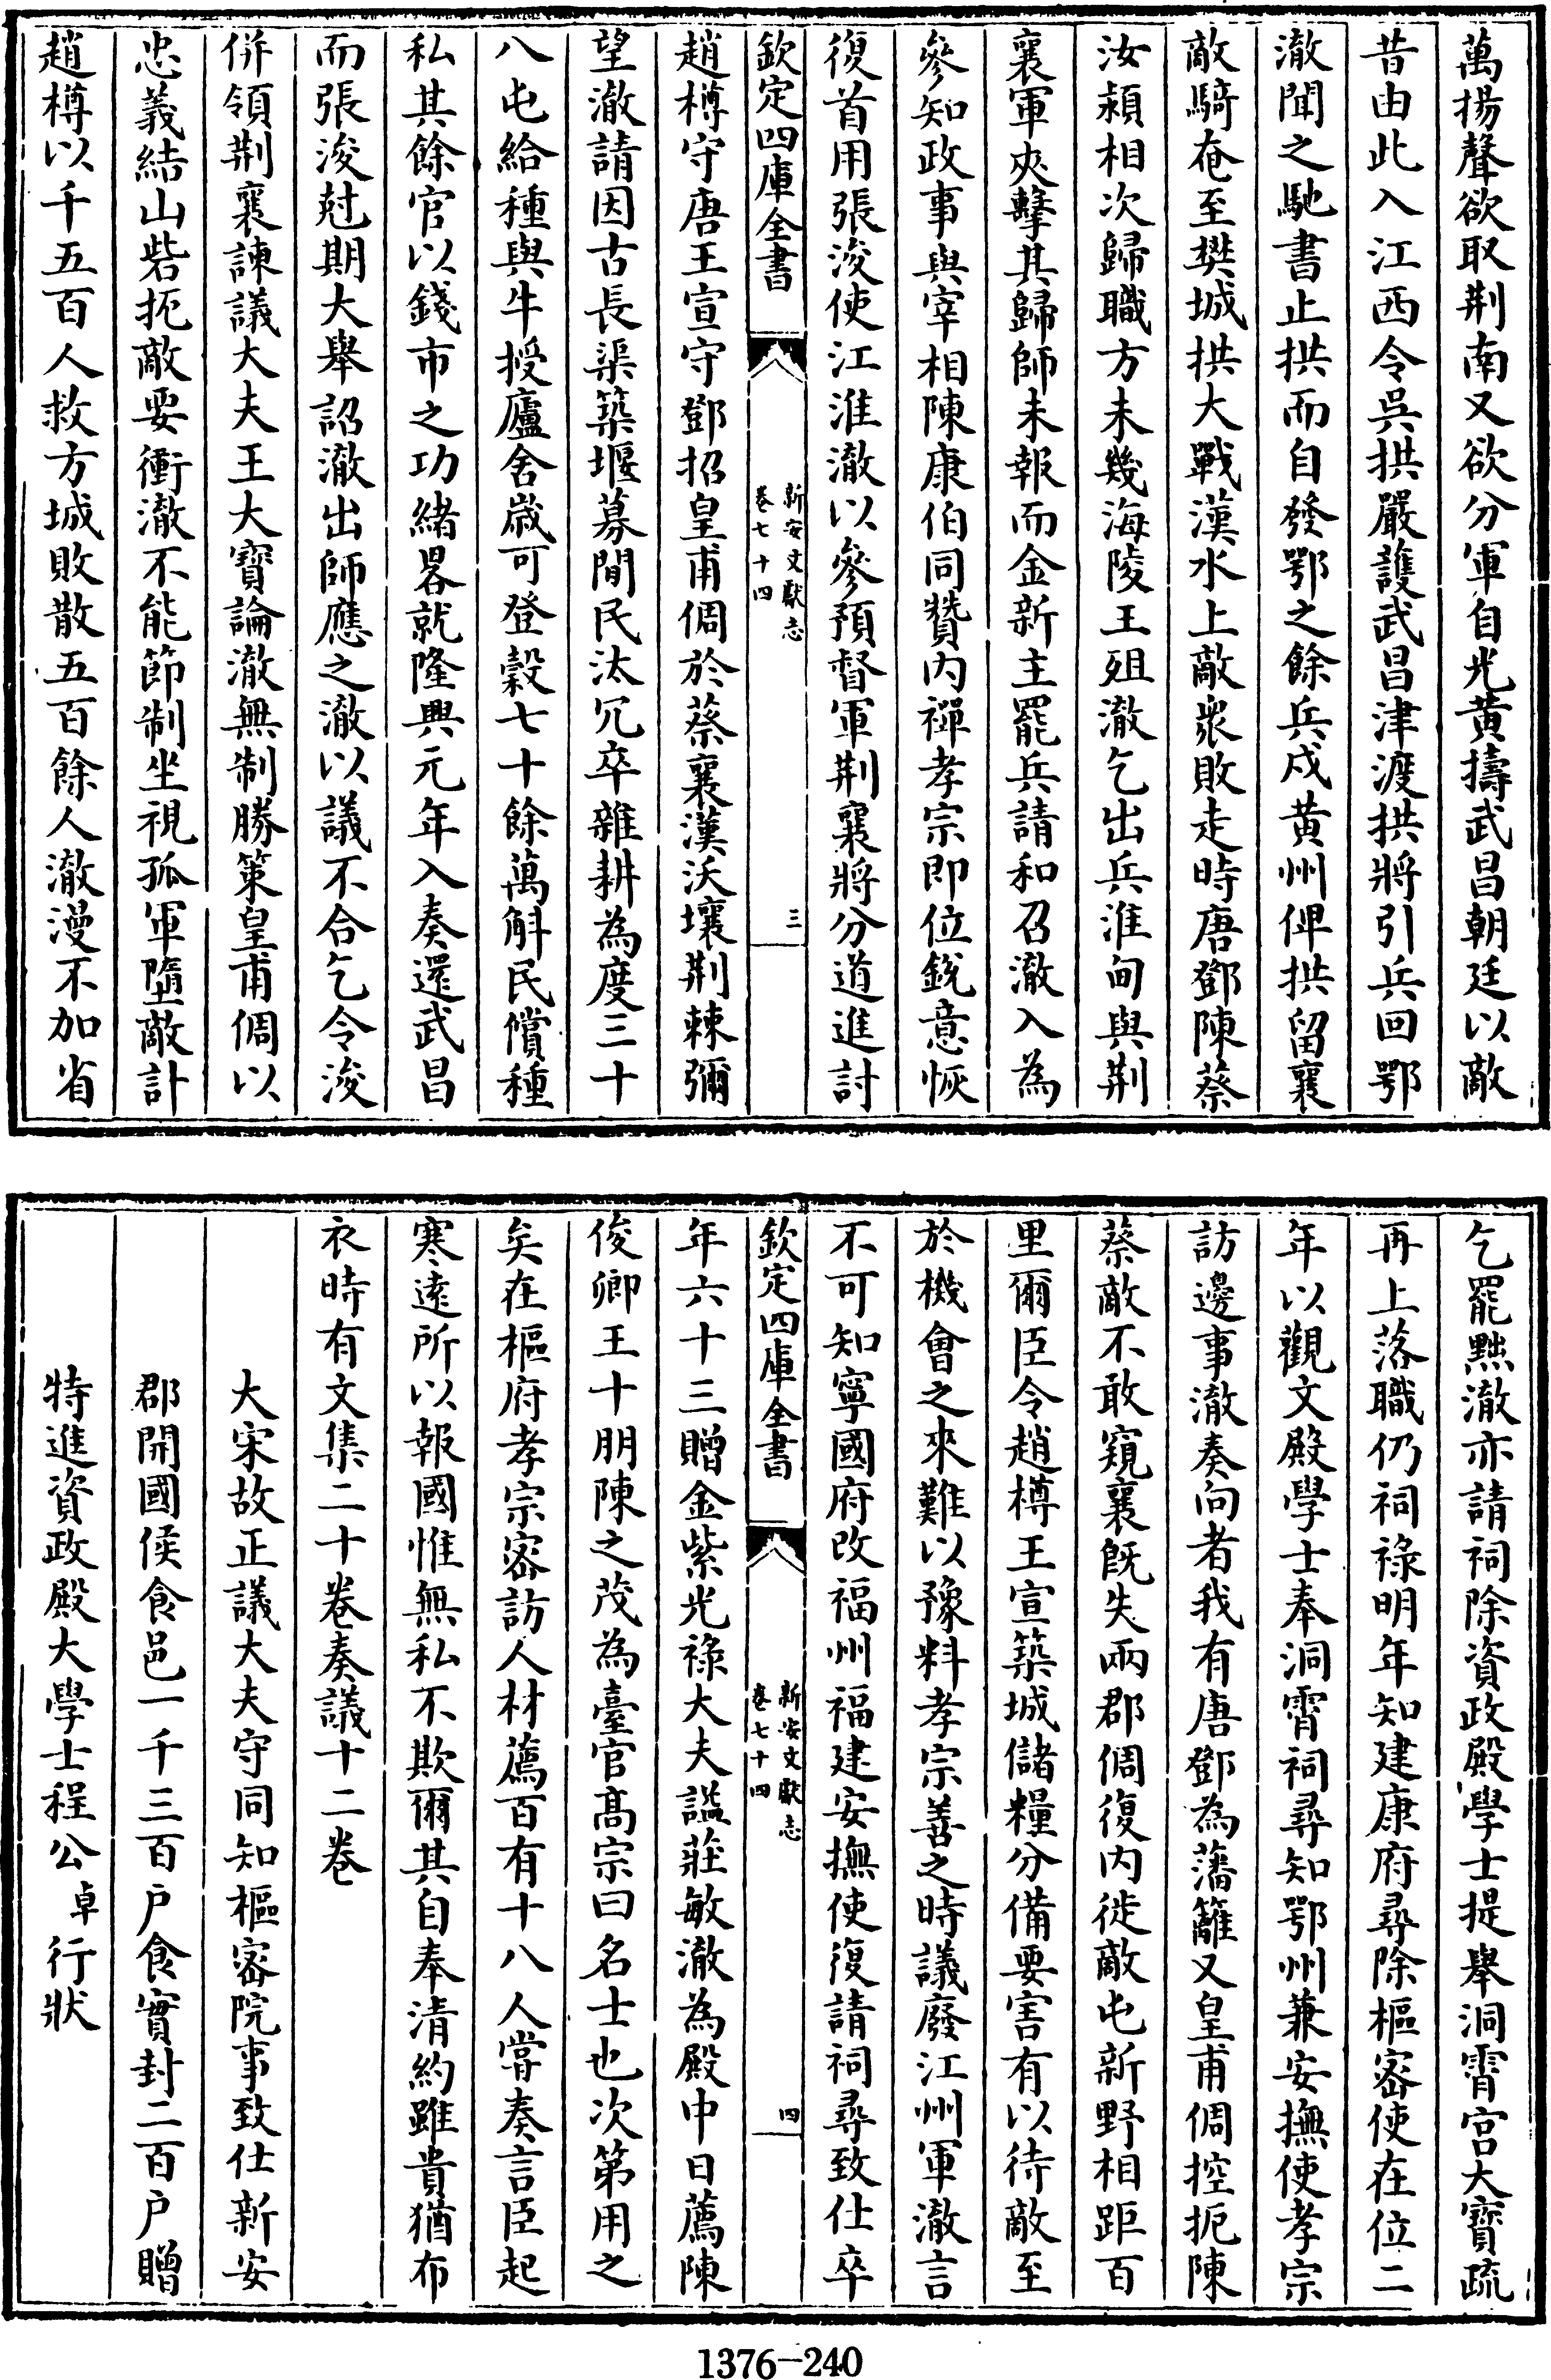 萬揚聲欲取荆南又欲分軍自光黄擣武昌朝廷以敵
昔由此入江西令吳拱嚴護武昌津渡拱將引兵回鄂
澈聞之馳書止拱而自發鄂之餘兵戍黄州俾拱留襄
敵騎奄至樊城拱大戰漢水上敵衆敗走時唐鄧陳蔡
汝潁相次歸職方未幾海陵王殂澈乞出兵淮甸與荆
襄軍夾擊其歸師未報而金新主罷兵請和召澈入為
參知政事與宰相陳康伯同贊内禪孝宗即位鋭意恢
復首用張浚使江淮澈以參預督軍荆襄將分道進討
欽定四庫全書
新安文獻志
卷七十四
三
趙樽守唐王宣守鄧招皇甫倜於蔡襄漢沃壤荆棘彌
望澈請因古長渠築堰募閒民汰冗卒雜耕為度三十
八屯給種與牛授廬舍歲可登穀七十餘萬斛民償種
私其餘官以錢市之功緒畧就隆興元年入奏還武昌
而張浚尅期大舉詔澈出師應之澈以議不合乞令浚
併領荆襄諫議大夫王大寶論澈無制勝策皇甫倜以
忠義結山砦扼敵要衝澈不能節制坐視孤軍墮敵計
趙樽以千五百人救方城敗散五百餘人澈漫不加省
乞罷黜澈亦請祠除資政殿學士提舉洞霄宫大寶疏
再上落職仍祠祿明年知建康府尋除樞密使在位二
年以觀文殿學士奉洞霄祠尋知鄂州兼安撫使孝宗
訪邊事澈奏向者我有唐鄧為藩籬又皇甫倜控扼陳
蔡敵不敢窺襄既失兩郡倜復内徙敵屯新野相距百
里爾臣令趙樽王宣築城儲糧分備要害有以待敵至
於機會之來難以豫料孝宗善之時議廢江州軍澈言
不可知寧國府改福州福建安撫使復請祠尋致仕卒
欽定四庫全書
新安文獻志
卷七十四
四
年六十三贈金紫光祿大夫謚莊敏澈為殿中日薦陳
俊卿王十朋陳之茂為臺官高宗曰名士也次第用之
矣在樞府孝宗密訪人材薦百有十八人嘗奏言臣起
寒逺所以報國惟無私不欺爾其自奉清約雖貴猶布
衣時有文集二十卷奏議十二卷
大宋故正議大夫守同知樞密院事致仕新安
郡開國侯食邑一千三百户食實封二百户贈
特進資政殿大學士程公卓行狀
1376-240